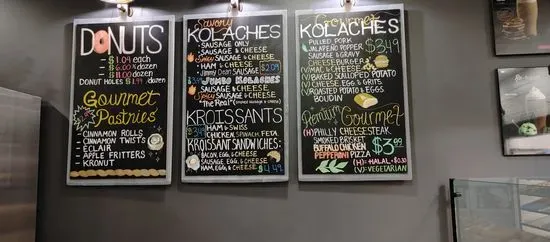 DONUTS
- $1.09 each
- $6.00 ½ dozen
- $11.00 dozen
DONUT HOLES $1.99 ½ dozen
Gourmet
Pastries
- CINNAMON ROLLS
- CINNAMON TWISTS
- ECLAIR
- APPLE FRITTERS
- KRONUT
Savory
KOLACHES
SAUSAGE ONLY
SAUSAGE & CHEESE
Spicy SAUSAGE & CHEESE
HAM & CHEESE
Jimmy Dean SAUSAGE
JUMBO KOLACHES
SAUSAGE & CHEESE
Spicy SAUSAGE & CHEESE
"The Real" (smoked sausage & cheese)
KROISSANTS
HAM & SWISS
CHICKEN, SPINACH, FETA
KROISSANT SANDWICHES:
BACON, EGG, & CHEESE
SAUSAGE, EGG, & CHEESE
HAM, EGG, & CHEESE $4.49
Gourmet
KOLACHES
PULLED PORK
JALAPEÑO POPPER $3.49
SAUSAGE & GRAVY
CHEESEBURGER
(V) MAC & CHEESE
(V) BAKED SCALLOPED POTATO
(V) EGGS & CHEESE
(V) ROASTED POTATO & EGGS
BOUDIN
Premium Gourmet
(H) PHILLY CHEESESTEAK
SMOKED BRISKET
BUFFALO CHICKEN $3.99
PEPPERONI PIZZA
(H): HALAL +$0.30
(V): VEGETARIAN